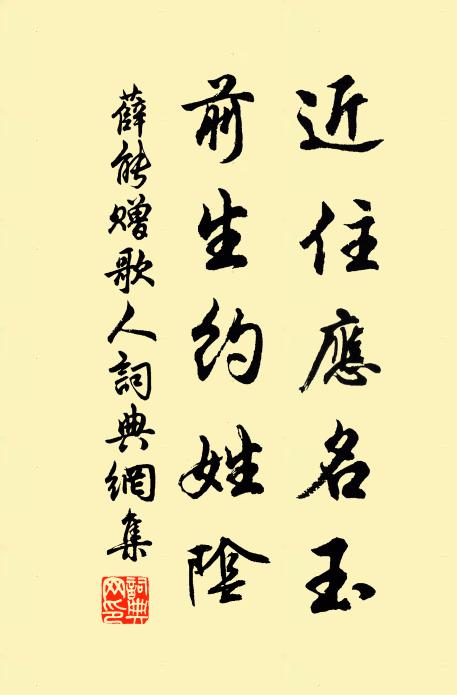 近住應名玉
前生約姓陰
薛能贈歌人詞典網集
詞典网印